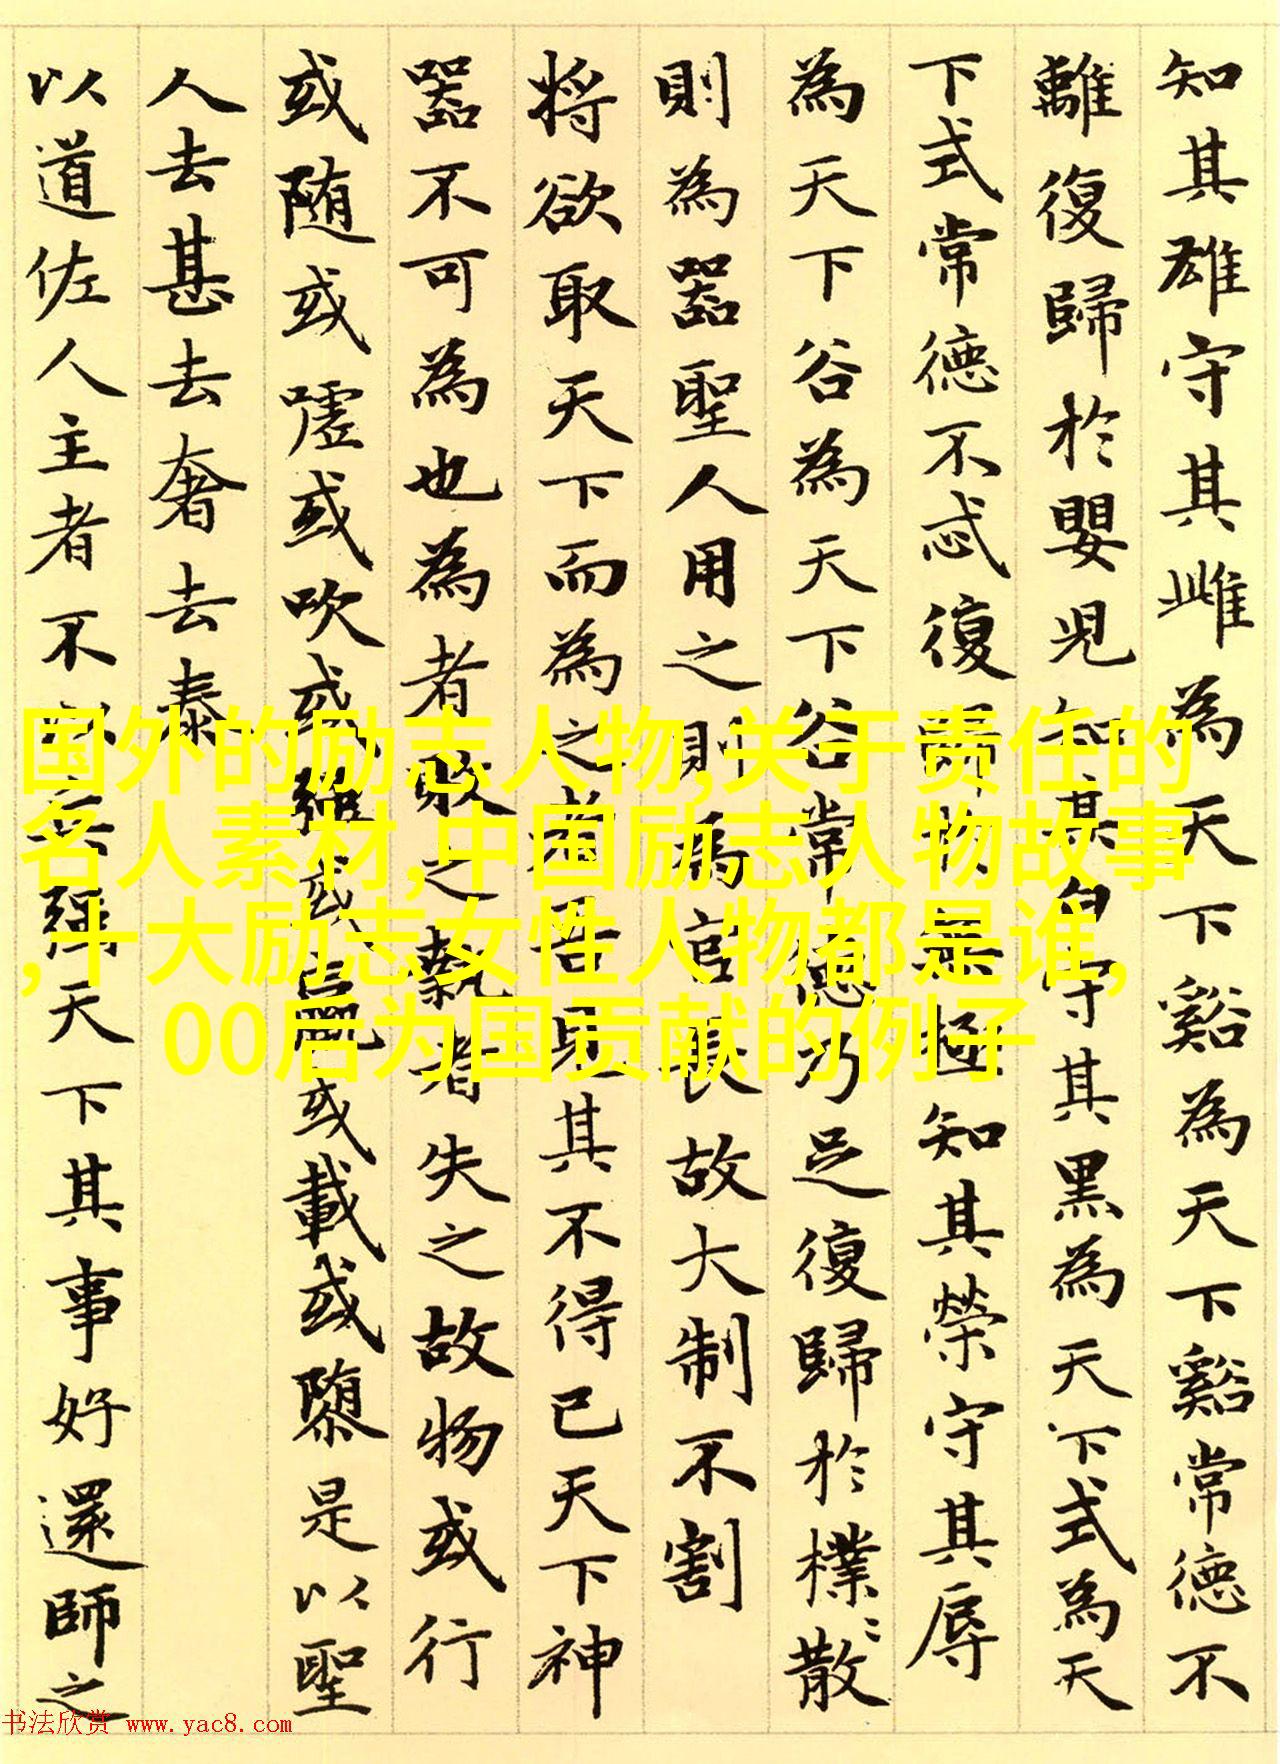 知其雄守其雌為天下谿為天下谿常德不
離復歸於嬰兒知其白守其黑為天下式為天
下式常德不忒復歸於無極知其榮守其辱
為天下谷為天下谷常德乃足復歸於樸〻散
則為器聖人用之則為官長故大制不割
将欲取天下而為之者吾見其不得已天下神
器不可為也為者敗之執者失之故物或行
或随或噓或吹或強或羸或載或隳是以聖
人去甚去奢去泰
以道佐人主者不以兵强天下其事好還師之
国外的励志人物,关于责任的
名人素材,中国励志人物故事
,十大励志女性人物都是谁,
00后为国贡献的例子
书法欣赏 www.yac8.com